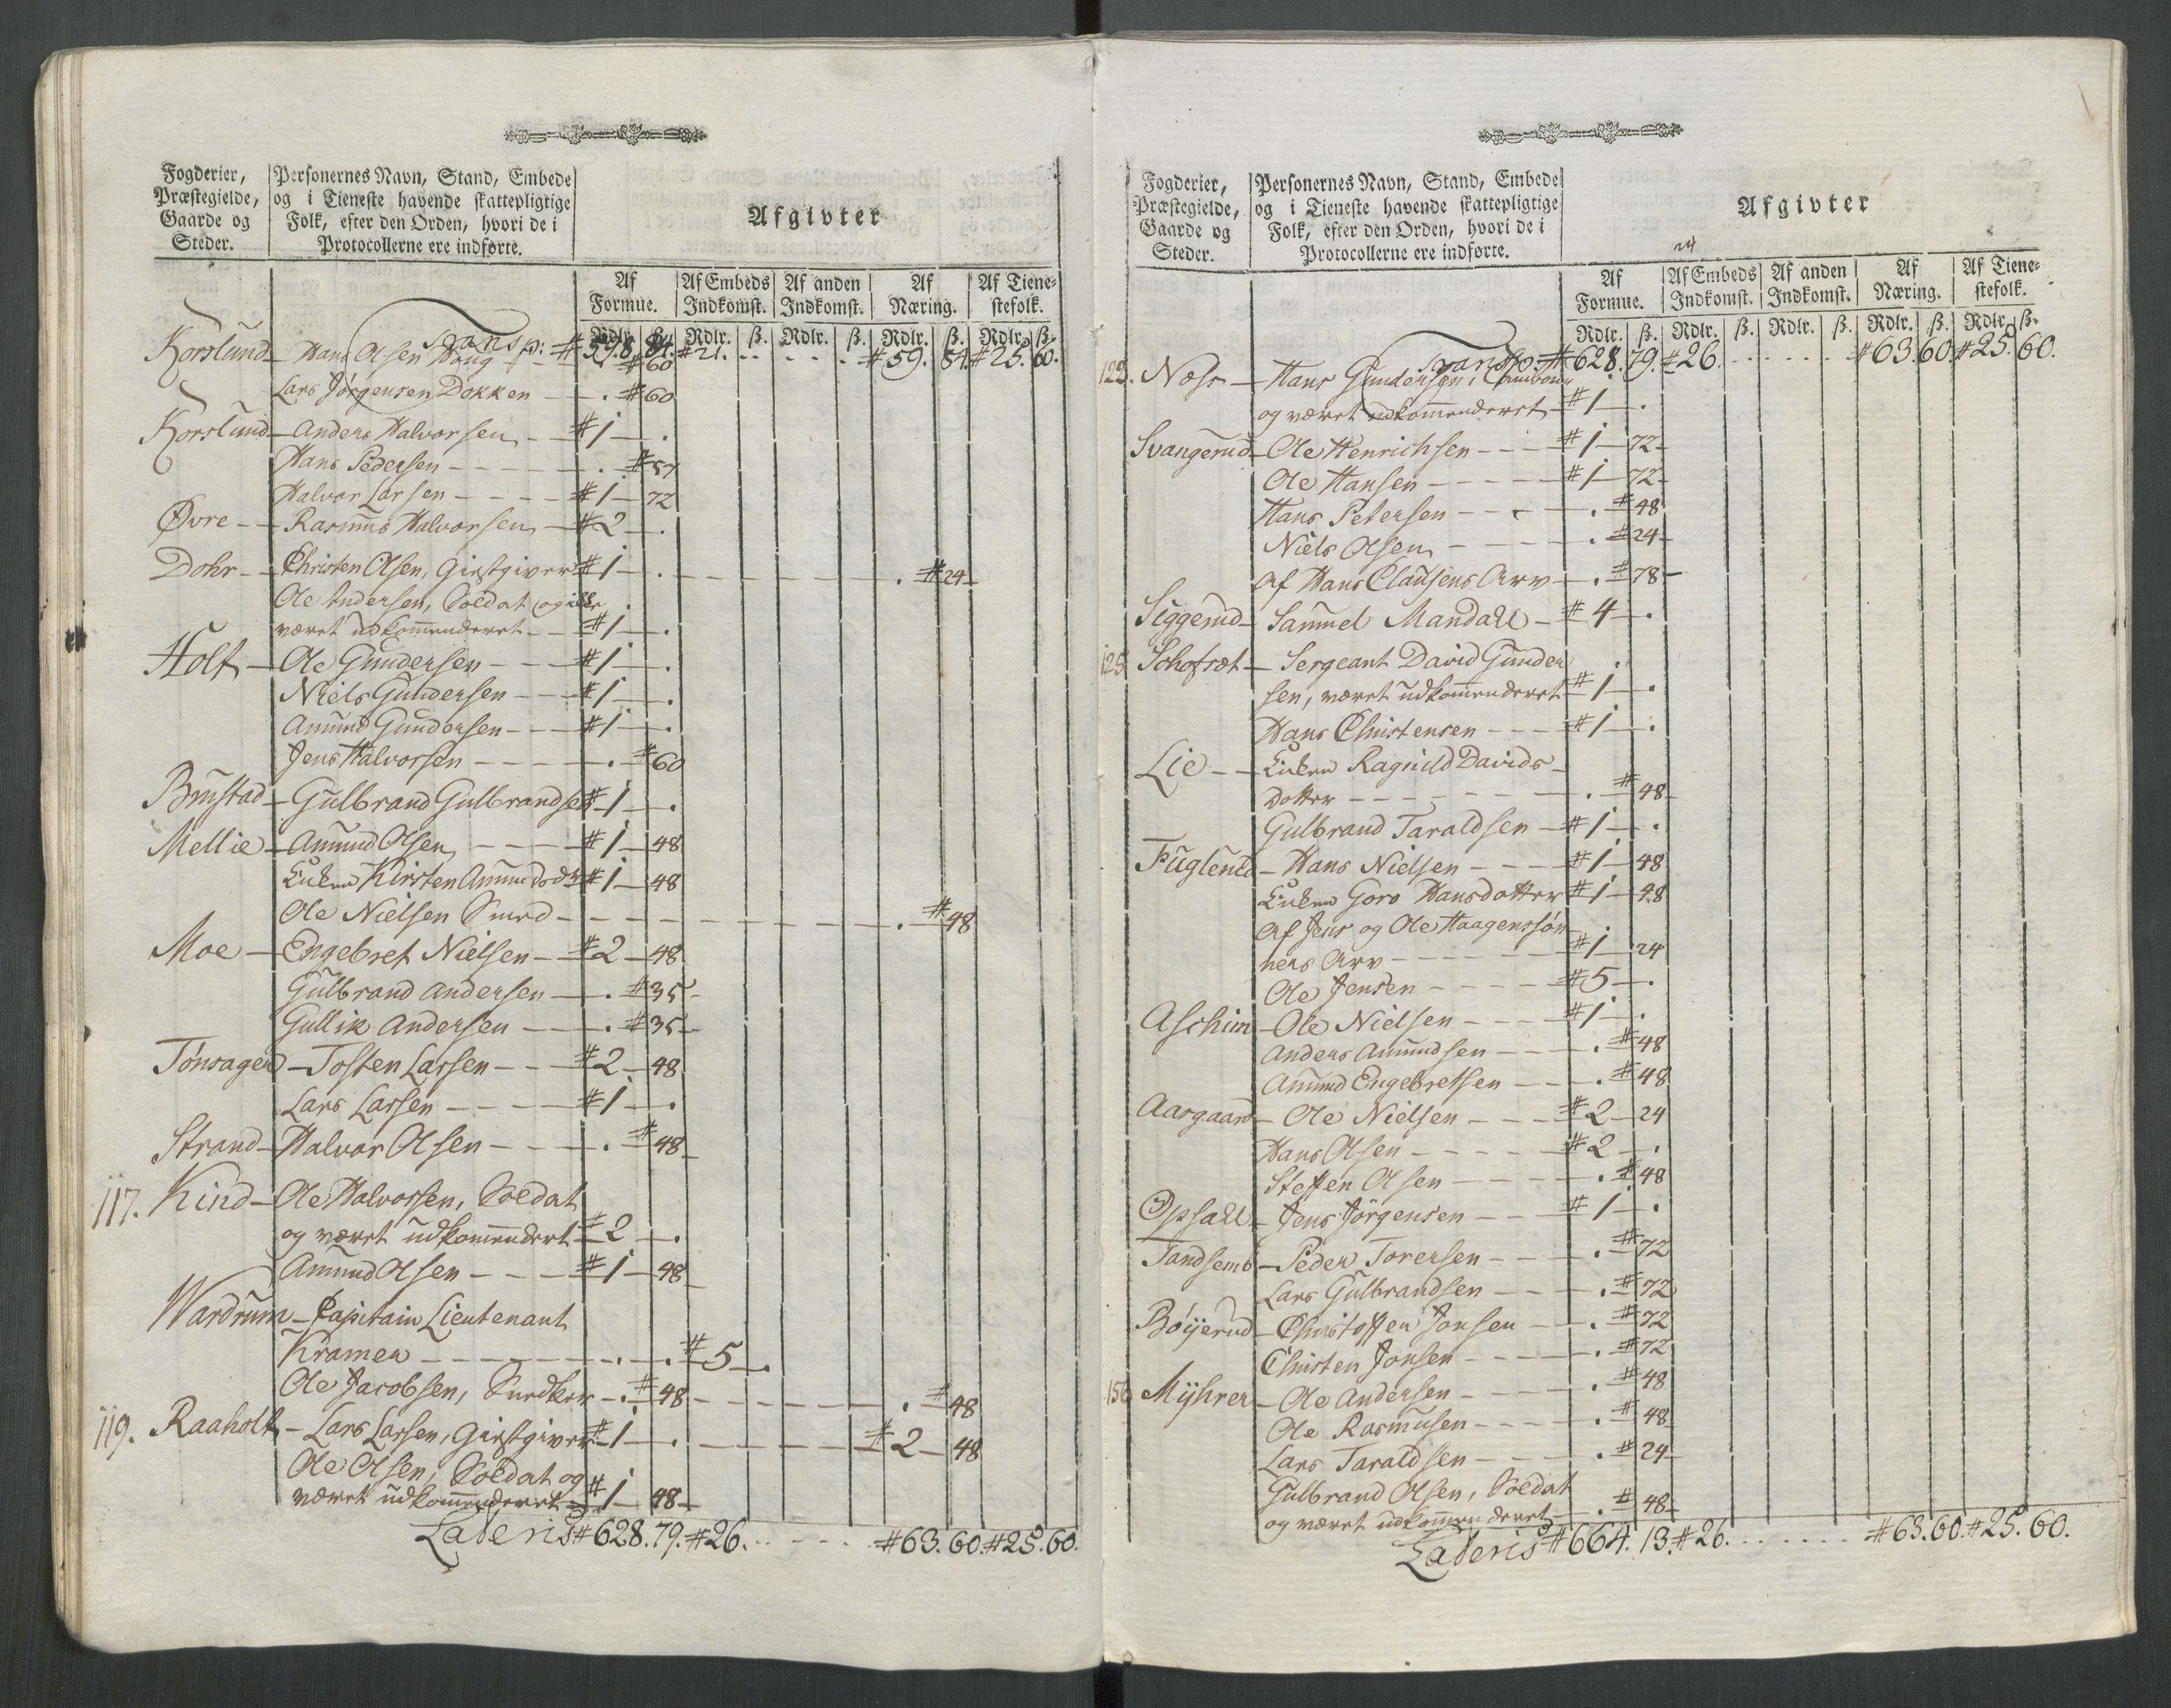 Fogderier, Præstegielde, Gaarde og Steder.
Personernes Navn, Stand, Embede og i Tieneste havende skattepligtige Folk, efter den Orden, hvori de i Protocollerne ere indførte.
Afgivter
Af Formue. Af Embeds Indkomst. Af anden Indkomst. Af Næring. Af Tienestefolk.
Rdlr. ß. Rdlr. ß. Rdlr. ß. Rdlr. ß. Rdlr. ß.
Transp: # 598. 84. # 21. # 59. 84. # 25. 60.
Korslund - Hans Olsen Houg # 60
Lars Jørgensen Dokken - . # 60
Korslund - Anders Halvorsen - # 1 - .
Hans Pedersen - . # 57
Halvor Larsen - # 1 - 72
Øvre - Rasmus Halvorsen - # 2 - .
Dohr - Christen Olsen, Giestgiver # 1 - . - . # 24
Ole Andersen, Soldat og
været udkommenderet - # 1 - .
Holt - Ole Gundersen - # 1 - .
Niels Gundersen - # 1 - .
Amund Gundersen - # 1 - .
Jens Halvorsen - . # 60
Brustad - Gulbrand Gulbrandsen # 1 - .
Mellie - Amund Olsen - # 1 - 48
Enken Kirsten Amundsd. # 1 - 48
Ole Nielsen Smed - . # 48
Moe - Engebret Nielsen - # 2 - 48
Gulbrand Andersen - . # 35
Gullik Andersen - . # 35
Tønsager - Tosten Larsen - # 2 - 48
Lars Larsen - # 1 - .
Strand - Halvor Olsen - . # 48
117. Kind - Ole Halvorsen, Soldat
og været udkommendert # 2 - .
Amund Olsen - # 1 - 48
Wardrum - Capitain Lieutenant
Kramer - . . # 5 - .
Ole Jacobsen, Snedker - . # 48 - . # 48
119. Raaholt - Lars Larsen, Giestgiver # 1 - . - # 2 - 48
Ole Olsen, Soldat og
været udkommenderet - # 1 - 48
Lateris # 628. 79. # 26. # 63. 60. # 25. 60.
Fogderier, Præstegielde, Gaarde og Steder.
Personernes Navn, Stand, Embede og i Tieneste havende skattepligtige Folk, efter den Orden, hvori de i Protocollerne ere indførte.
Afgivter
Af Formue. Af Embeds Indkomst. Af anden Indkomst. Af Næring. Af Tienestefolk.
Rdlr. ß. Rdlr. ß. Rdlr. ß. Rdlr. ß. Rdlr. ß.
Transp: # 628. 79. # 26. # 63. 60. # 25. 60.
Næs - Hans Gundersen,
og været udkommenderet - # 1 - .
Svangerud - Ole Henrichsen - # 1 - 72
Ole Hansen - # 1 - 72
Hans Petersen - . # 48
Niels Olsen - . # 24
Af Hans Clausens Arv - . # 78
Siggerud - Sammel Mandall - # 4 - .
125. Schofræt - Sergeant David Gunder
sen, været udkommenderet # 1 - .
Hans Christensen - # 1 - .
Lie - Enken Ragnild Davids-
dotter - . # 48
Gulbrand Taraldsen - # 1 - .
Fuglerud - Hans Nielsen - # 1 - 48
Enken Goro Hansdotter # 1 - 48
Af Jens og Ole Haagenssøn
ners Arv - # 1 - 24
Ole Jensen - # 5 - .
Aschim - Ole Nielsen - # 1 - .
Anders Amundsen - . # 48
Amund Engebretsen - . # 48
Aasgaard - Ole Nielsen - # 2 - 24
Hans Olsen - # 2 - .
Steffen Olsen - . # 48
Opsall - Jens Jørgensen - # 1 - .
Tandsemb - Peder Torersen - . # 72
Lars Gulbrandsen - . # 72
Bøyerud - Christoffer Jonsen - . # 72
Christen Jonsen - . # 72
156 Myhrer - Ole Andersen - . # 48
Ole Rasmusen - . # 48
Lars Taraldsen - . # 24
Gulbrand Olsen, Soldat
og været udkommenderet - . # 48
Lateris # 664. 13. # 26. # 63. 60. # 25. 60.